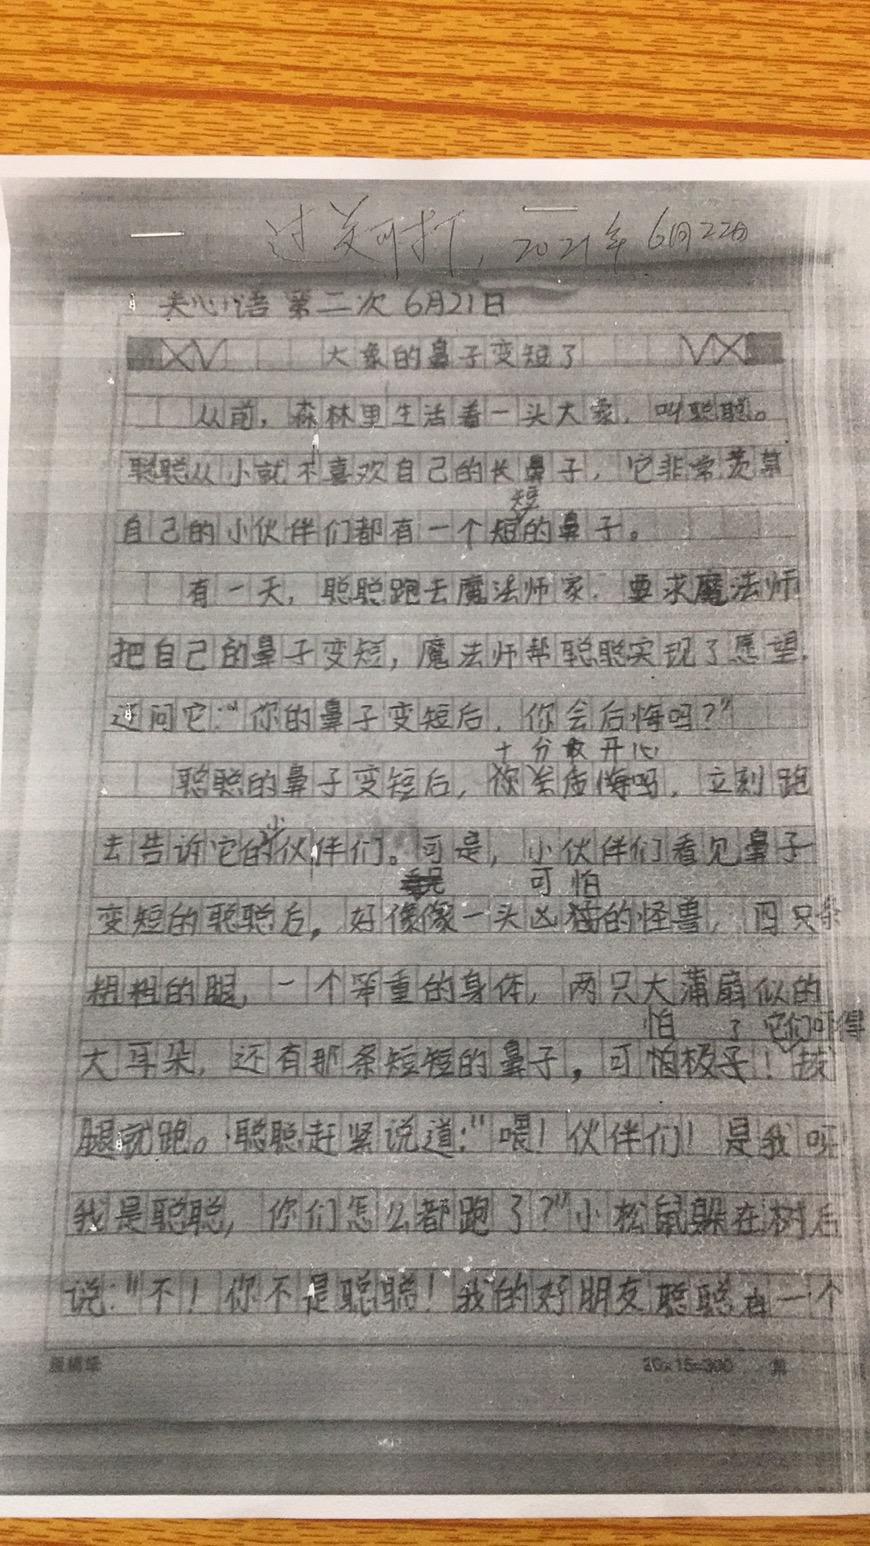 过关可打，2021年6月22日
夹心小语 第二次 6月21日
大象的鼻子变短了
从前，森林里生活着一头大象，叫聪聪。
聪聪从小就不喜欢自己的长鼻子，它非常羡慕
短
自己的小伙伴们都有一个短的鼻子。
有一天，聪聪跑去魔法师家，要求魔法师
把自己的鼻子变短，魔法师帮聪聪实现了愿望，
还问它：“你的鼻子变短后，你会后悔吗？”
十分开心
聪聪的鼻子变短后，你会后悔吗，立刻跑
小
去告诉它的伙伴们。可是，小伙伴们看见鼻子
可怕
变短的聪聪后，好像像一头凶猛的怪兽，四只条
粗粗的腿，一个笨重的身体，两只大蒲扇似的
怕 了 它们吓得
大耳朵，还有那条短短的鼻子，可怕极了！拔
腿就跑。聪聪赶紧说道：“喂！伙伴们！是我呀！
我是聪聪，你们怎么都跑了？”小松鼠躲在树后
说：“不！你不是聪聪！我的好朋友聪聪有一个
20×15=300